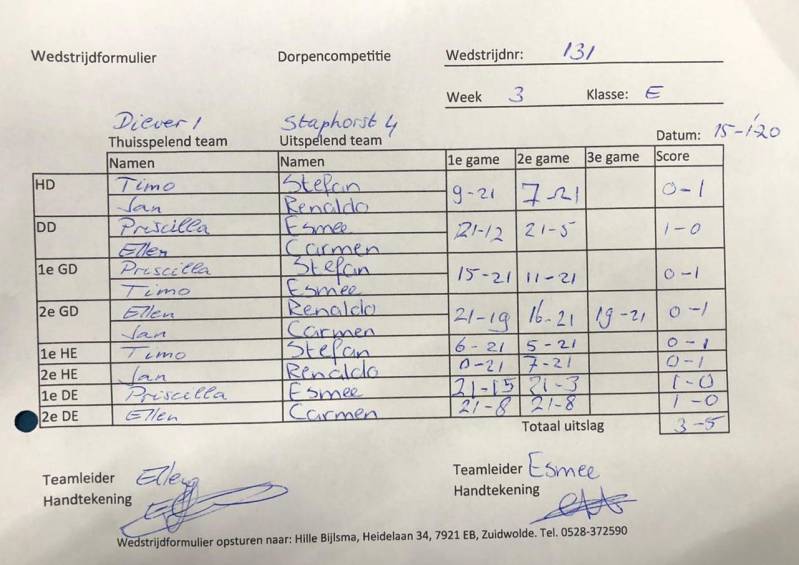 Wedstrijdformulier Dorpencompetitie Wedstrijdnr: 131
Week 3 Klasse: E
Diever 1 Staphorst 4
Thuisspelend team Uitspelend team Datum: 15-1-20
Namen Namen 1e game 2e game 3e game Score
HD Timo Stefan 9-21 7-21 0-1
Jan Renaldo
DD Priscilla Esmee 21-12 21-5 1-0
Ellen Carmen
1e GD Priscilla Stefan 15-21 11-21 0-1
Timo Esmee
2e GD Ellen Renaldo 21-19 16-21 19-21 0-1
Jan Carmen
1e HE Timo Stefan 6-21 5-21 0-1
2e HE Jan Renaldo 0-21 7-21 0-1
1e DE Priscilla Esmee 21-15 21-3 1-0
2e DE Ellen Carmen 21-8 21-8 1-0
Totaal uitslag 3-5
Teamleider Ellen Teamleider Esmee
Handtekening Handtekening
Wedstrijdformulier opsturen naar: Hille Bijlsma, Heidelaan 34, 7921 EB, Zuidwolde. Tel. 0528-372590